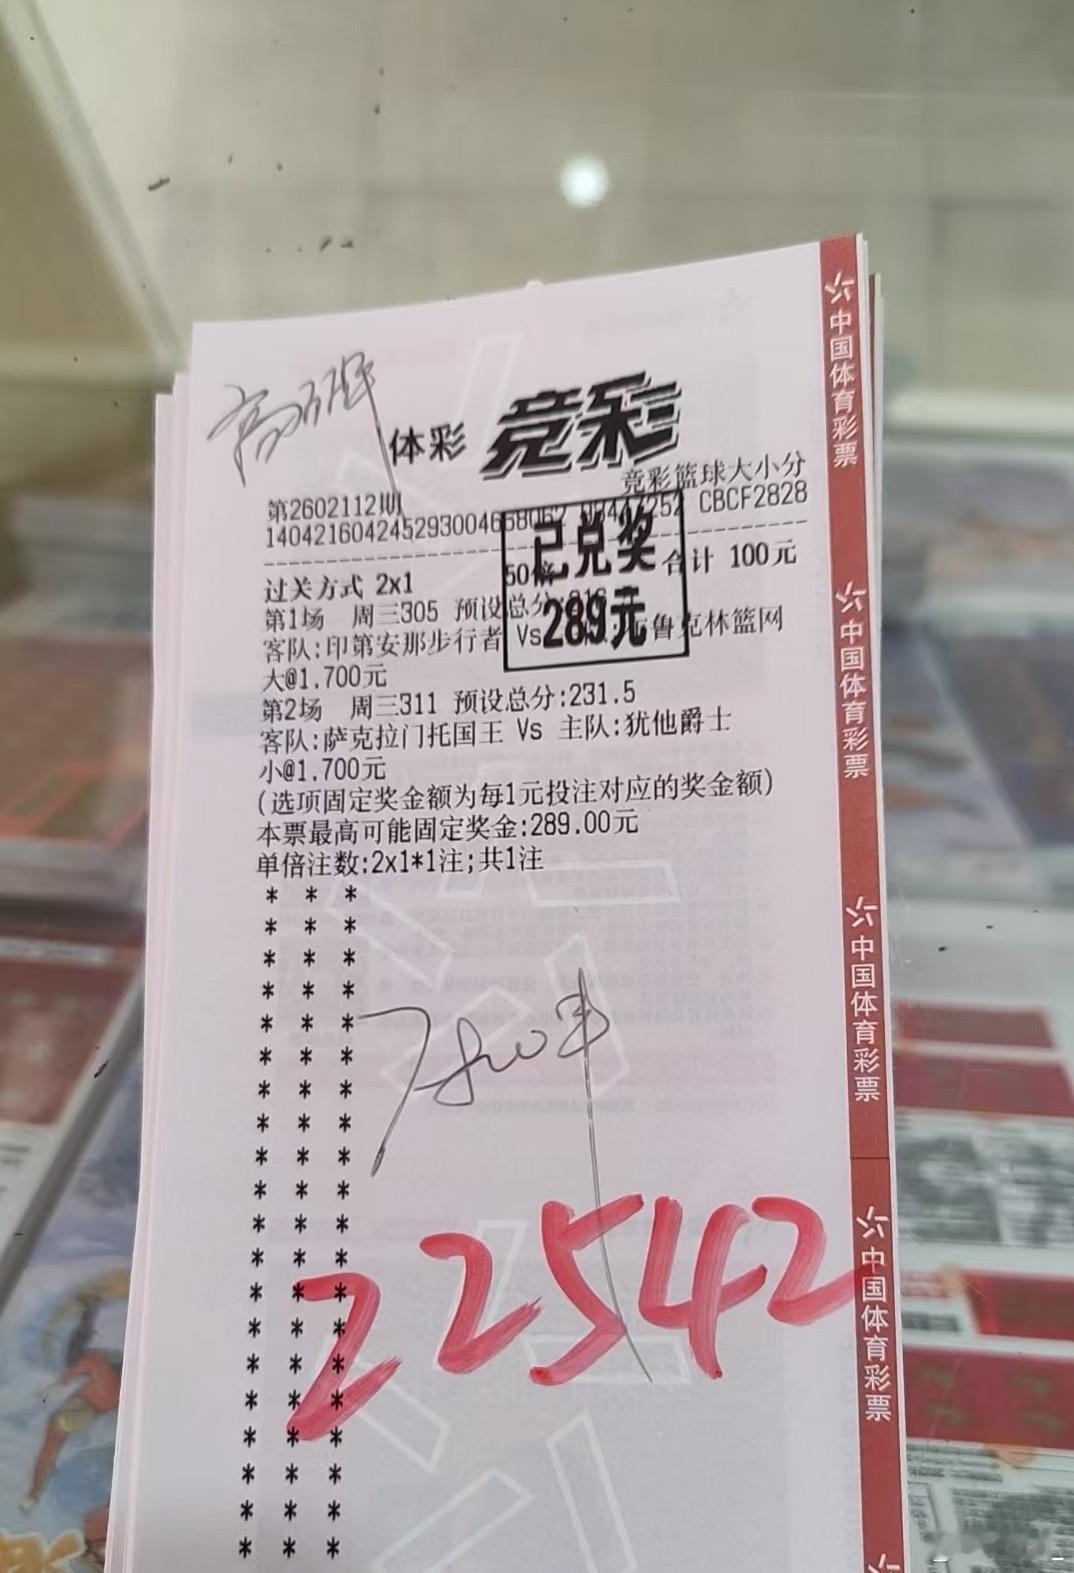 体彩 竞彩
竞彩篮球大小分
第2602112期
CBCF2828
已兑奖
289元
过关方式 2x1 50倍 合计 100元
第1场 周三305 预设总分
客队:印第安那步行者 Vs 布鲁克林篮网
大@1.700元
第2场 周三311 预设总分:231.5
客队:萨克拉门托国王 Vs 主队:犹他爵士
小@1.700元
(选项固定奖金额为每1元投注对应的奖金额)
本票最高可能固定奖金:289.00元
单倍注数:2x1*1注;共1注
22542
中国体育彩票
中国体育彩票
中国体育彩票
中国体育彩票